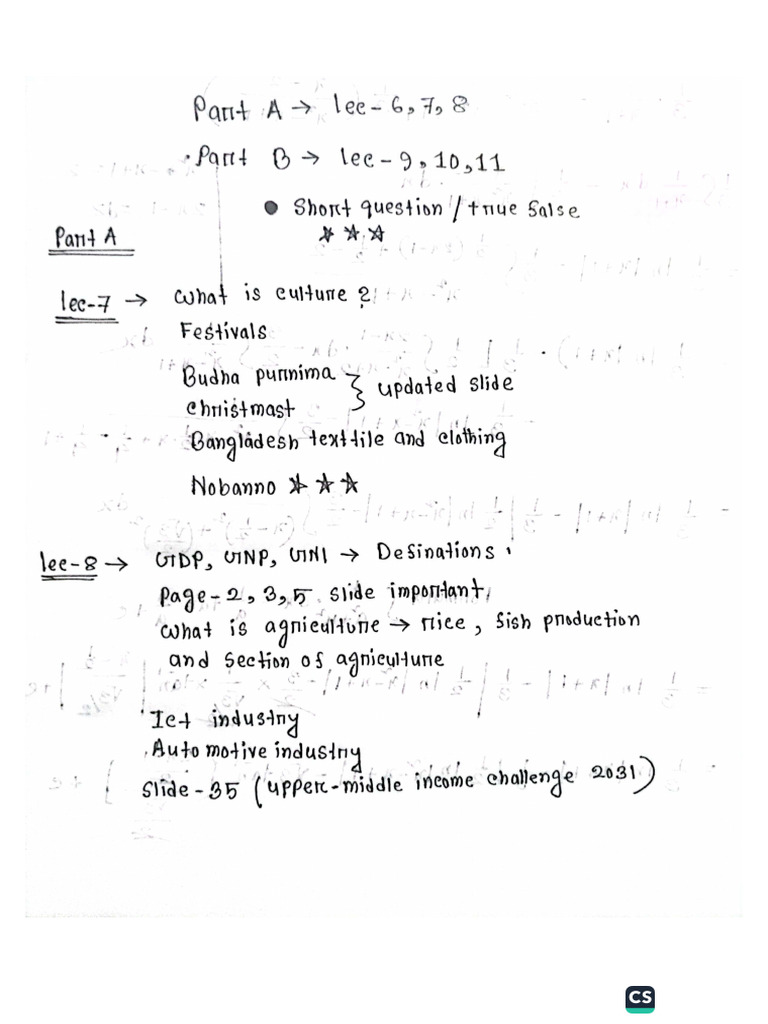 Part A → lec-6, 7, 8
Part B → lec-9, 10, 11
● Short question / true false
★ ★ ★
Part A
lec-7 → What is culture?
Festivals
Budha purnima } updated slide
christmast
Bangladesh texttile and clothing
Nobanno ★ ★ ★
lec-8 → GDP, GNP, GNI → Definations.
page-2, 3, 5 slide important,
what is agriculture → rice, fish production
and section of agriculture
Ict industry
Automotive industry
slide-35 (upper-middle income challenge 2031)
CS